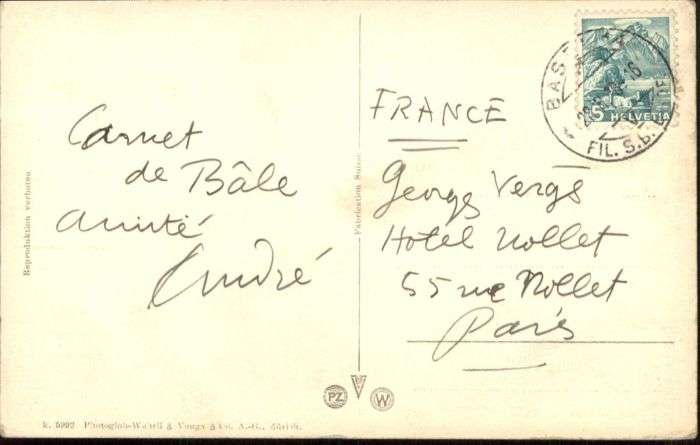 Carnet
de Bâle
amitié
André
FRANCE
Georges Vergş
Hotel Nollet
55 rue Nollet
Paris
BAS
FIL. S.B.B.
5
HELVETIA
Reproduktion verboten
Fabrication Suisse
PZ
W
k. 5992 Photoglob-Wehrli & Vouga & Co. A.-G., Zürich.